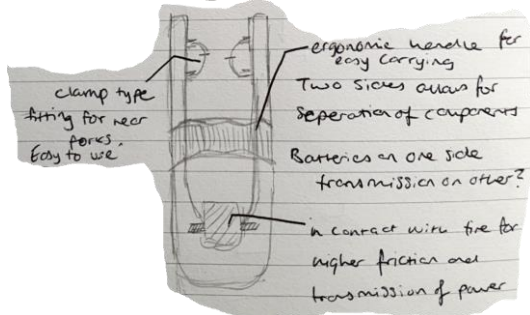 clamp type
fitting for rear
forks.
Easy to use
ergonomic handle for
easy carrying
Two sides allows for
seperation of components
Batteries on one side
transmission on other?
in contact with tire for
higher friction and
transmission of power